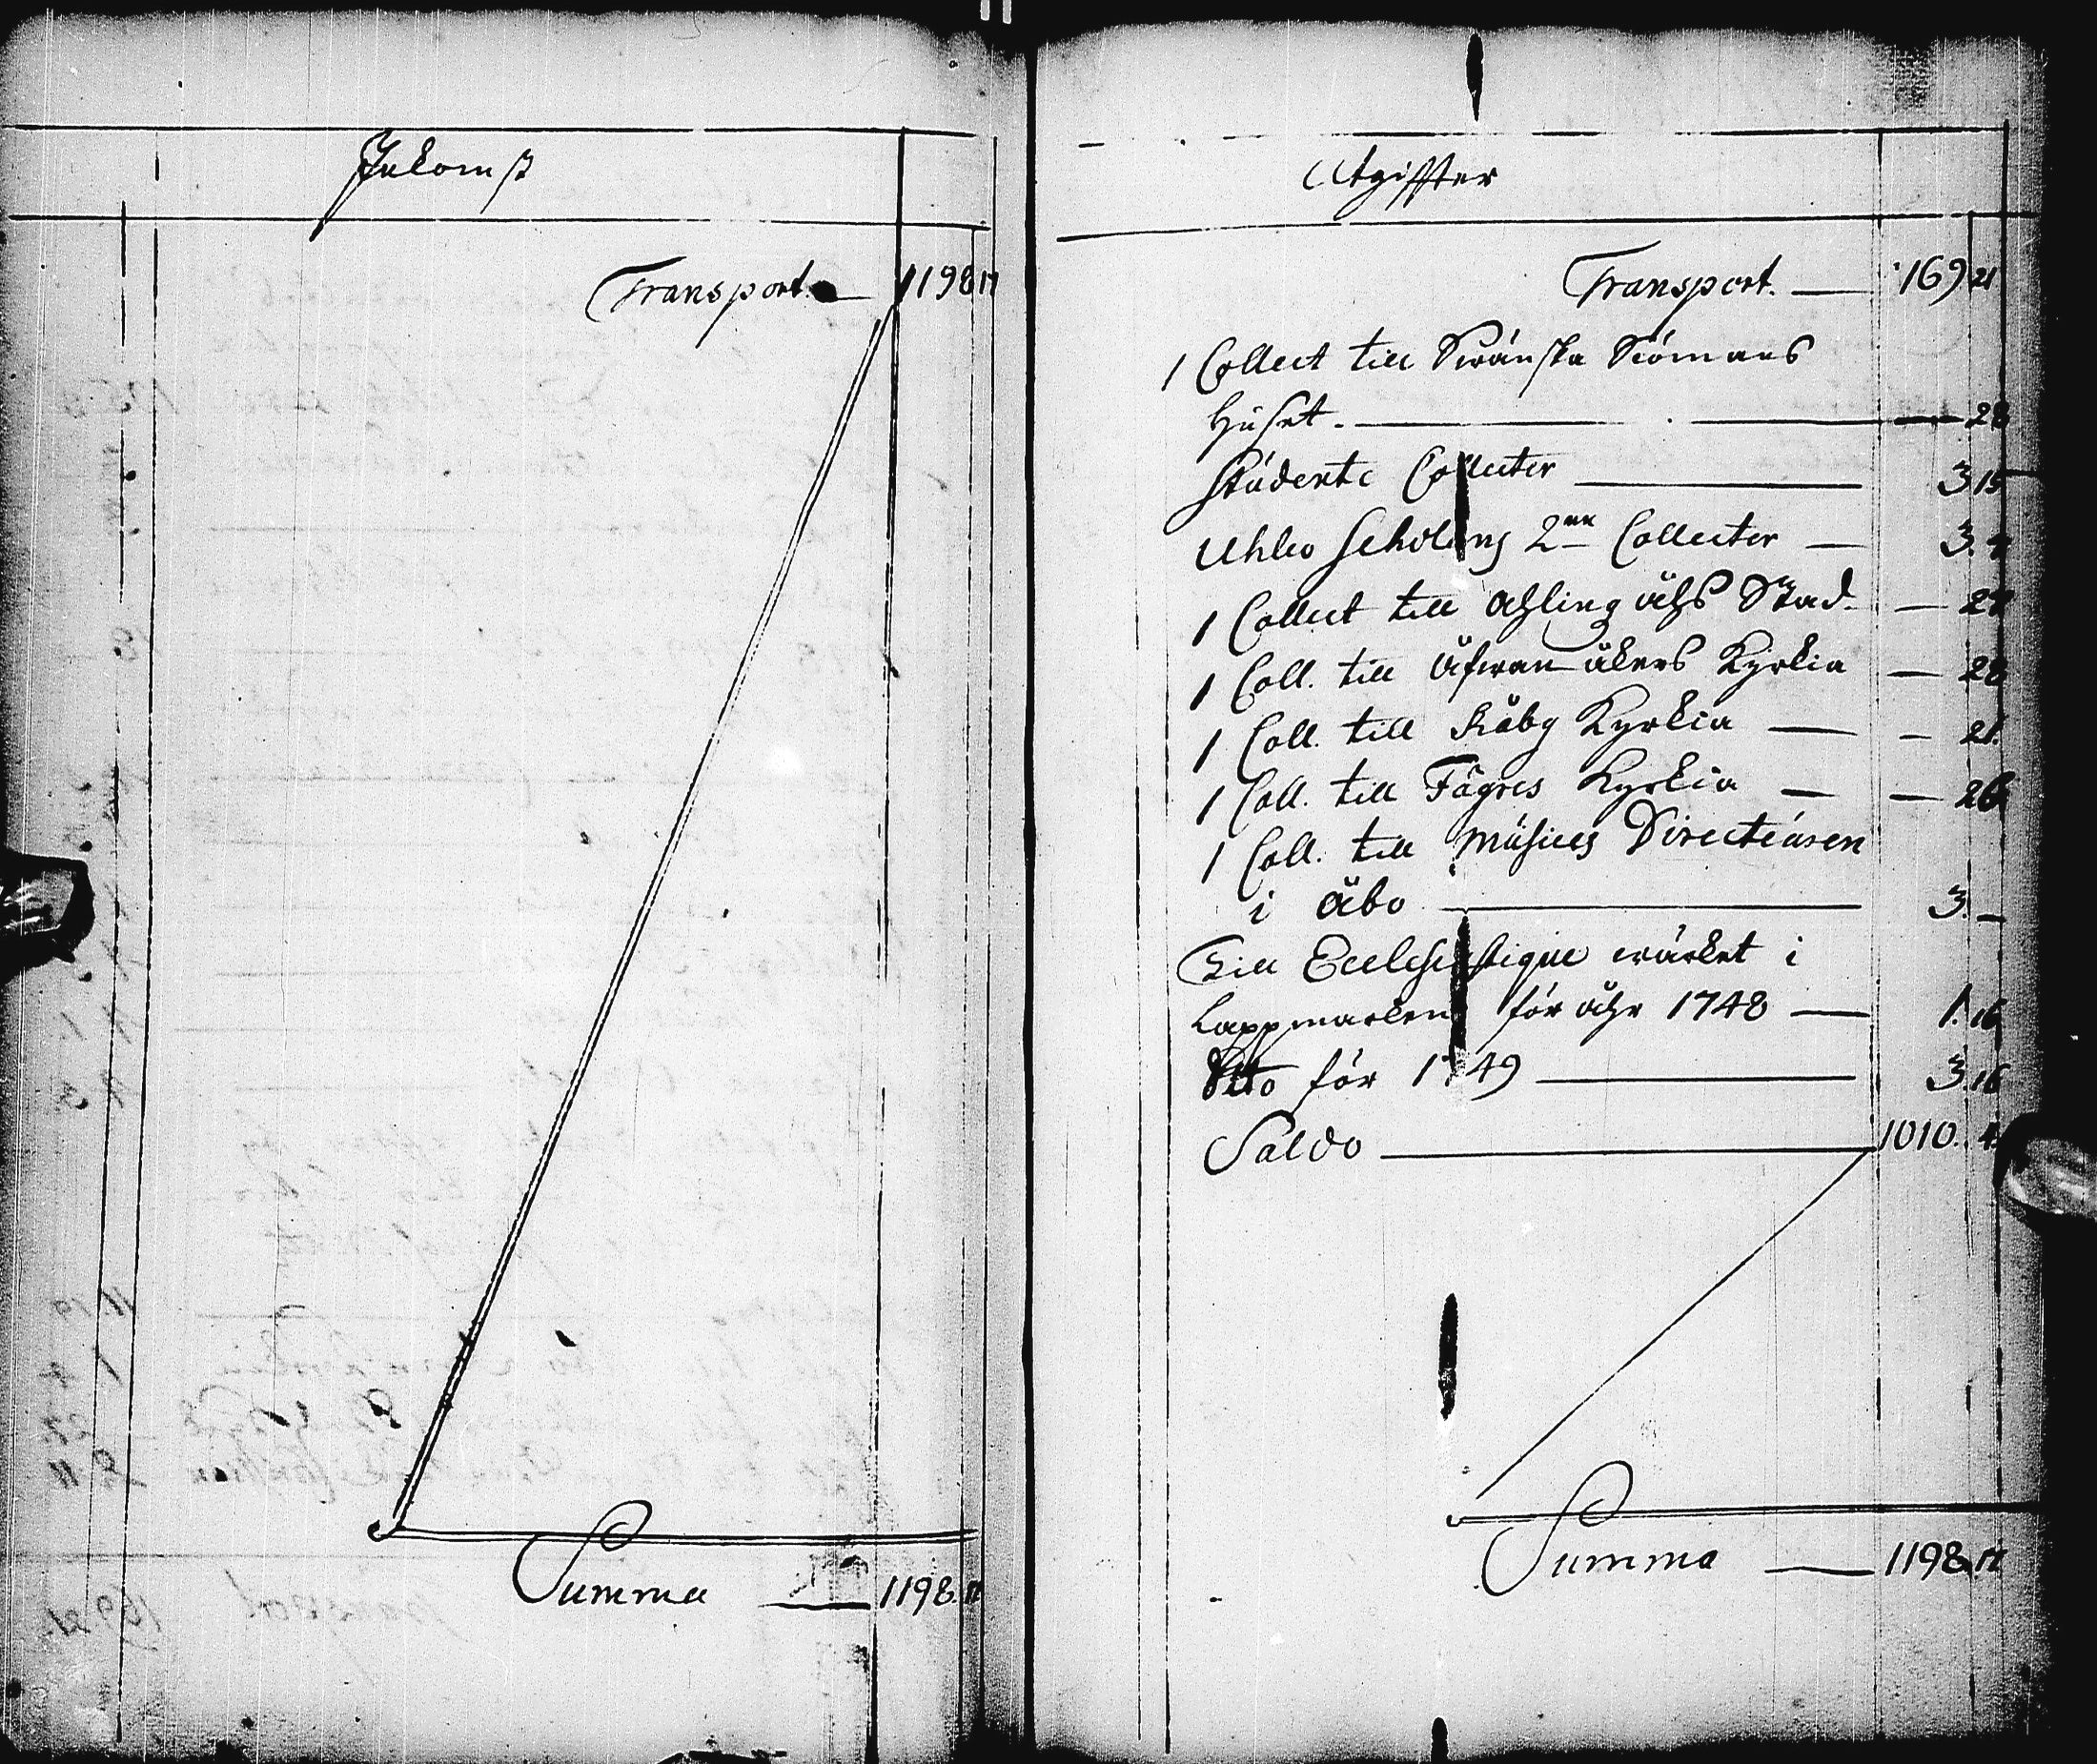 Inkomst
Transport. — 1198 17
Summa — 1198. 17
Utgiffter
Transport. — 169 21
1 Collect till Swänska Siömans
Huset. — 28
Studente Collecter — 3 15
Uhleo Scholens 2ne Collecter — 3. 4
1 Collect till Ahlingsåhs Stad. — 27
1 Coll. till Åfwanåkers Kyrkia — 28
1 Coll. till Kyrkia — 21.
1 Coll. till Fägres Kyrkia — 26
1 Coll. till Musices Directeuren
i Åbo — 3. —
Till Ecclesiastique wärket i
Lappmarken för åhr 1748 — 1. 16
Dito för 1749 — 3. 16
Saldo — 1010. 4.
Summa — 1198. 17